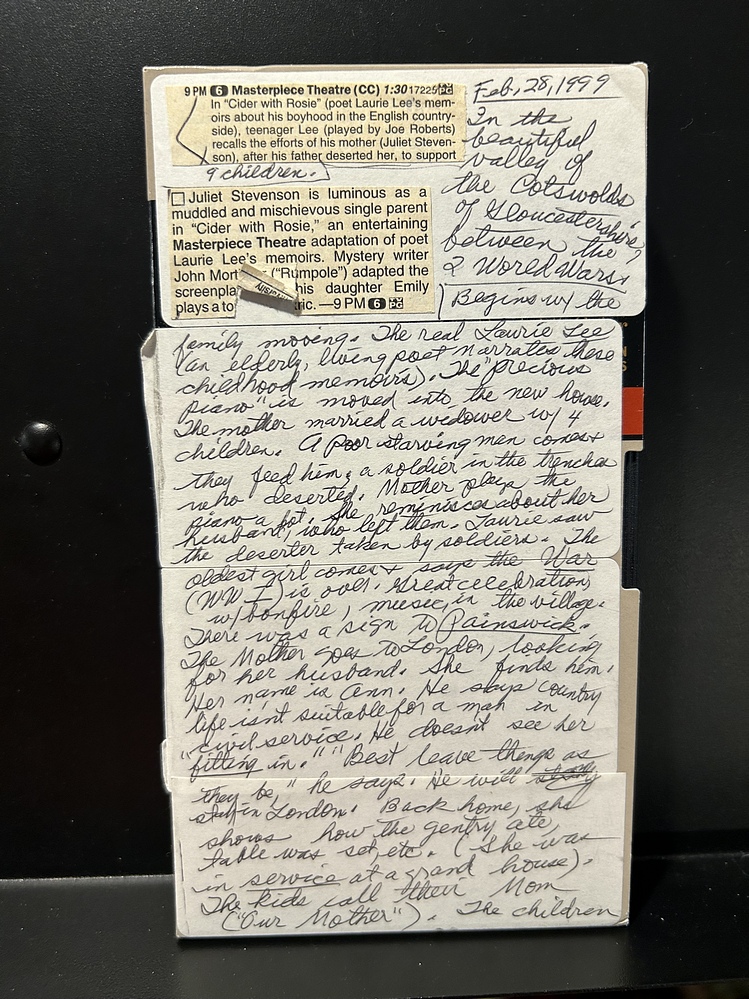 9 PM 6 Masterpiece Theatre (CC) 1:30 17225
In "Cider with Rosie" (poet Laurie Lee's mem-
oirs about his boyhood in the English country-
side), teenager Lee (played by Joe Roberts)
recalls the efforts of his mother (Juliet Steven-
son), after his father deserted her, to support
9 children.
Juliet Stevenson is luminous as a
muddled and mischievous single parent
in "Cider with Rosie," an entertaining
Masterpiece Theatre adaptation of poet
Laurie Lee's memoirs. Mystery writer
John Mort ("Rumpole") adapted the
screenpla his daughter Emily
plays a to ric. —9 PM 6
Feb. 28, 1999
In the
beautiful
valley of
the Cotswolds
of Gloucestershire,
between the
2 World Wars.
Begins w/ the
family moving. The real Laurie Lee
(an elderly, living poet narrates these
childhood memoirs). The "precious
piano" is moved into the new house.
The mother married a widower w/ 4
children. A poor starving man comes &
they feed him, a soldier in the trenches
who deserted. Mother plays the
piano a lot. She reminisces about her
husband, who left them. Laurie saw
the deserter taken by soldiers. The
oldest girl comes & says the War
(WW I) is over. Great celebration
w/ bonfire, music, in the village.
There was a sign to Painswick.
The Mother goes to London, looking
for her husband. She finds him.
Her name is Ann. He says country
life isn't suitable for a man in
"civil service. He doesn't see her
fitting in." "Best leave things as
they be," he says. He will
stay in London. Back home, she
shows how the gentry ate,
table was set, etc. (She was
in service at a grand house).
The kids call their Mom
("Our Mother"). The children